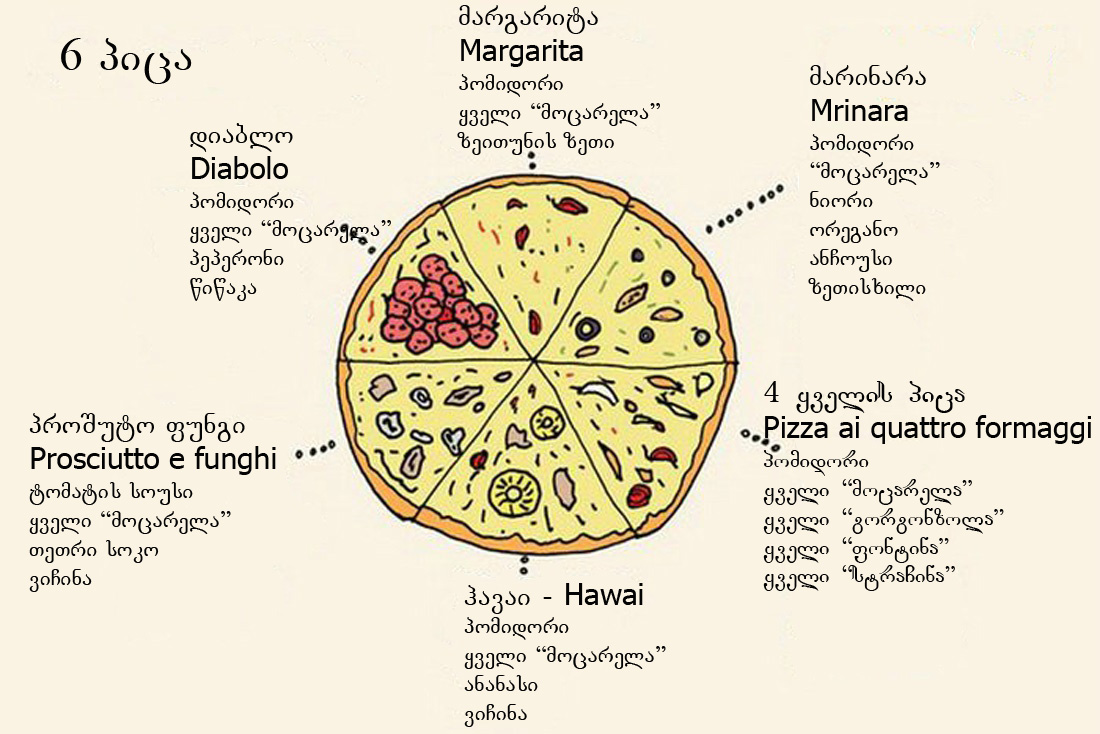 6 პიცა
მარგარიტა
Margarita
პომიდორი
ყველი “მოცარელა”
ზეითუნის ზეთი
მარინარა
Mrinara
პომიდორი
“მოცარელა”
ნიორი
ორეგანო
ანჩოუსი
ზეთისხილი
დიაბლო
Diabolo
პომიდორი
ყველი “მოცარელა”
პეპერონი
წიწაკა
4 ყველის პიცა
Pizza ai quattro formaggi
პომიდორი
ყველი “მოცარელა”
ყველი “გორგონზოლა”
ყველი “ფონტინა”
ყველი “სტრაჩინა”
პროშუტო ფუნგი
Prosciutto e funghi
ტომატის სოუსი
ყველი “მოცარელა”
თეთრი სოკო
ვიჩინა
ჰავაი - Hawai
პომიდორი
ყველი “მოცარელა”
ანანასი
ვიჩინა